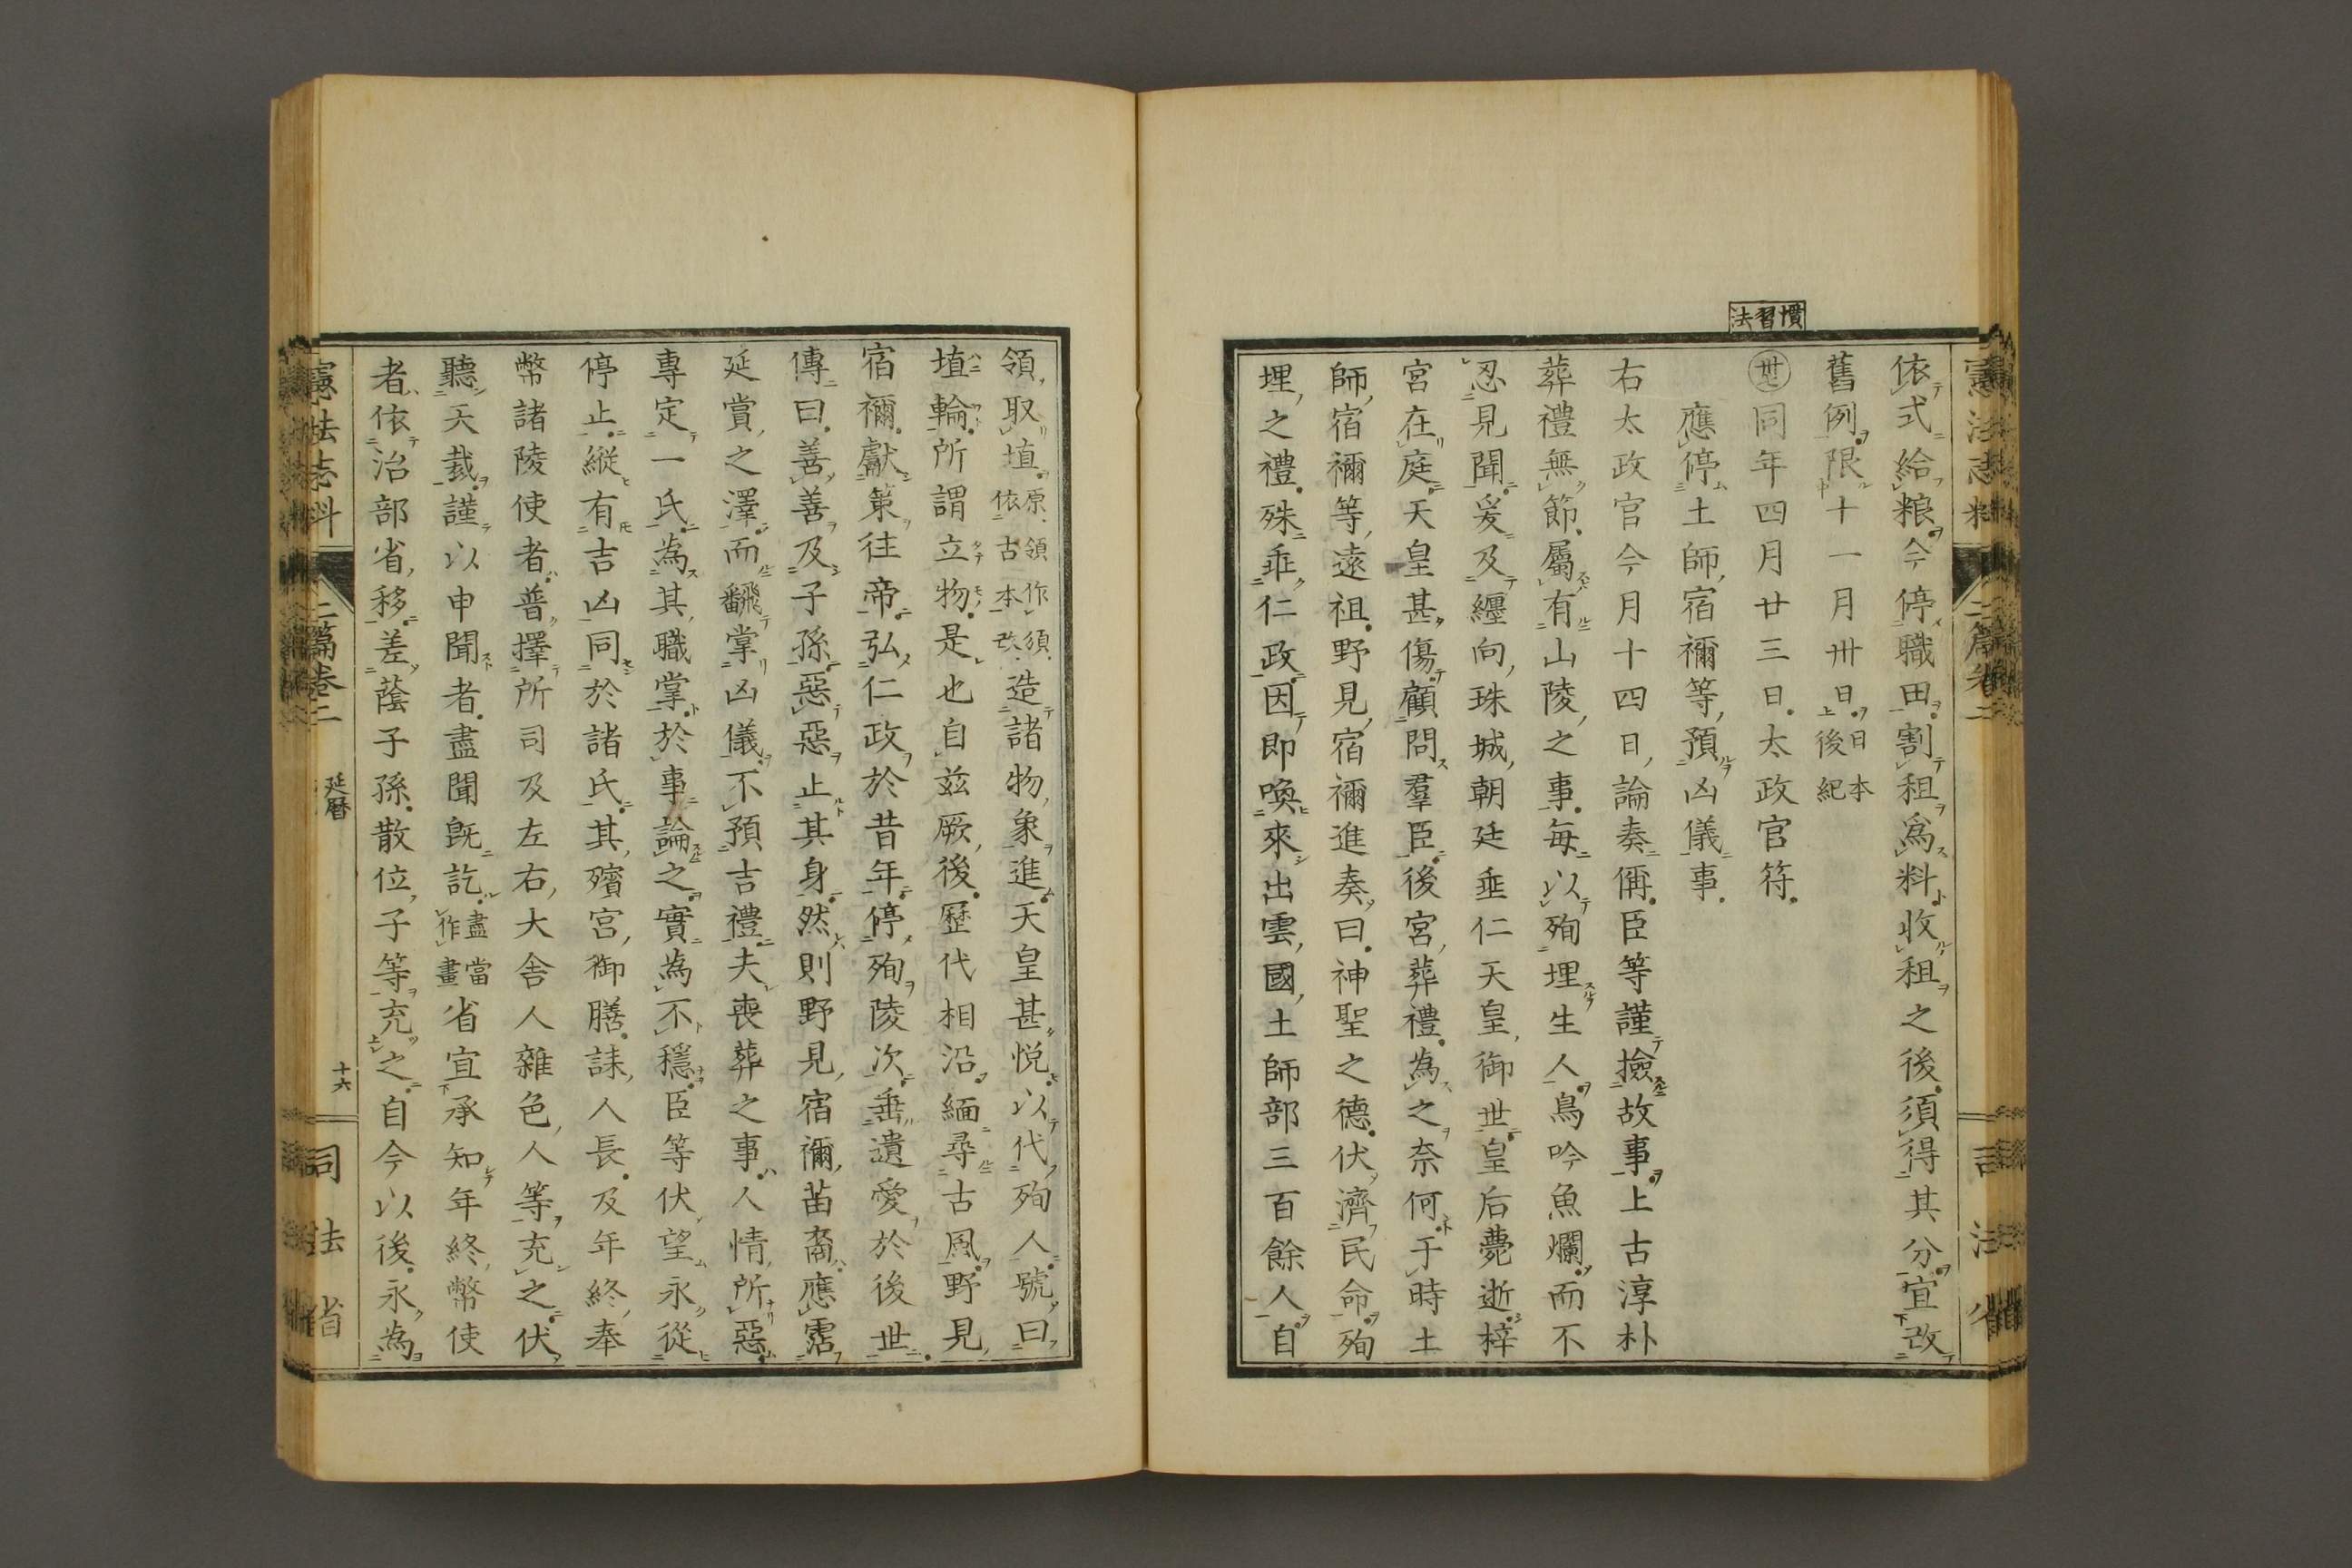 憲法志料
二篇卷二
司法省
慣習法
依式給粮今停職田割租爲料收租之後須得其分宜改
舊例限十一月卅日日本後紀
同年四月廿三日太政官符
應停土師宿禰等預凶儀事
右太政官今月十四日論奏偁臣等謹撿故事上古淳朴
葬禮無節屬有山陵之事每以殉埋生人鳥吟魚爛而不
忍見聞爰及纏向珠城朝廷垂仁天皇御世皇后薨逝梓
宮在庭天皇甚傷顧問羣臣後宮葬禮為之奈何于時土
師宿禰等遠祖野見宿禰進奏曰神聖之德伏濟民命殉
埋之禮殊乖仁政因即喚來出雲國土師部三百餘人自
領取埴原領作須依古本改造諸物象進天皇甚悅以代殉人號曰
埴輪所謂立物是也自茲厥後歷代相沿緬尋古風野見
宿禰獻策往帝弘仁政於昔年停殉陵次垂遺愛於後世
傳曰善善及子孫惡惡止其身然則野見宿禰苗裔應霑
延賞之澤而飜掌凶儀不預吉禮夫喪葬之事人情所惡
專定一氏為其職掌於事論之實為不穩臣等伏望永從
停止縱有吉凶同於諸氏其殯宮御膳誄人長及年終奉
幣諸陵使者普擇所司及左右大舍人雜色人等充之伏
聽天裁謹以申聞者盡聞既訖盡當作畫省宜承知年終幣使
者依治部省移差蔭子孫散位子等充之自今以後永為
憲法志料
二篇卷二
延曆
十六
司法省